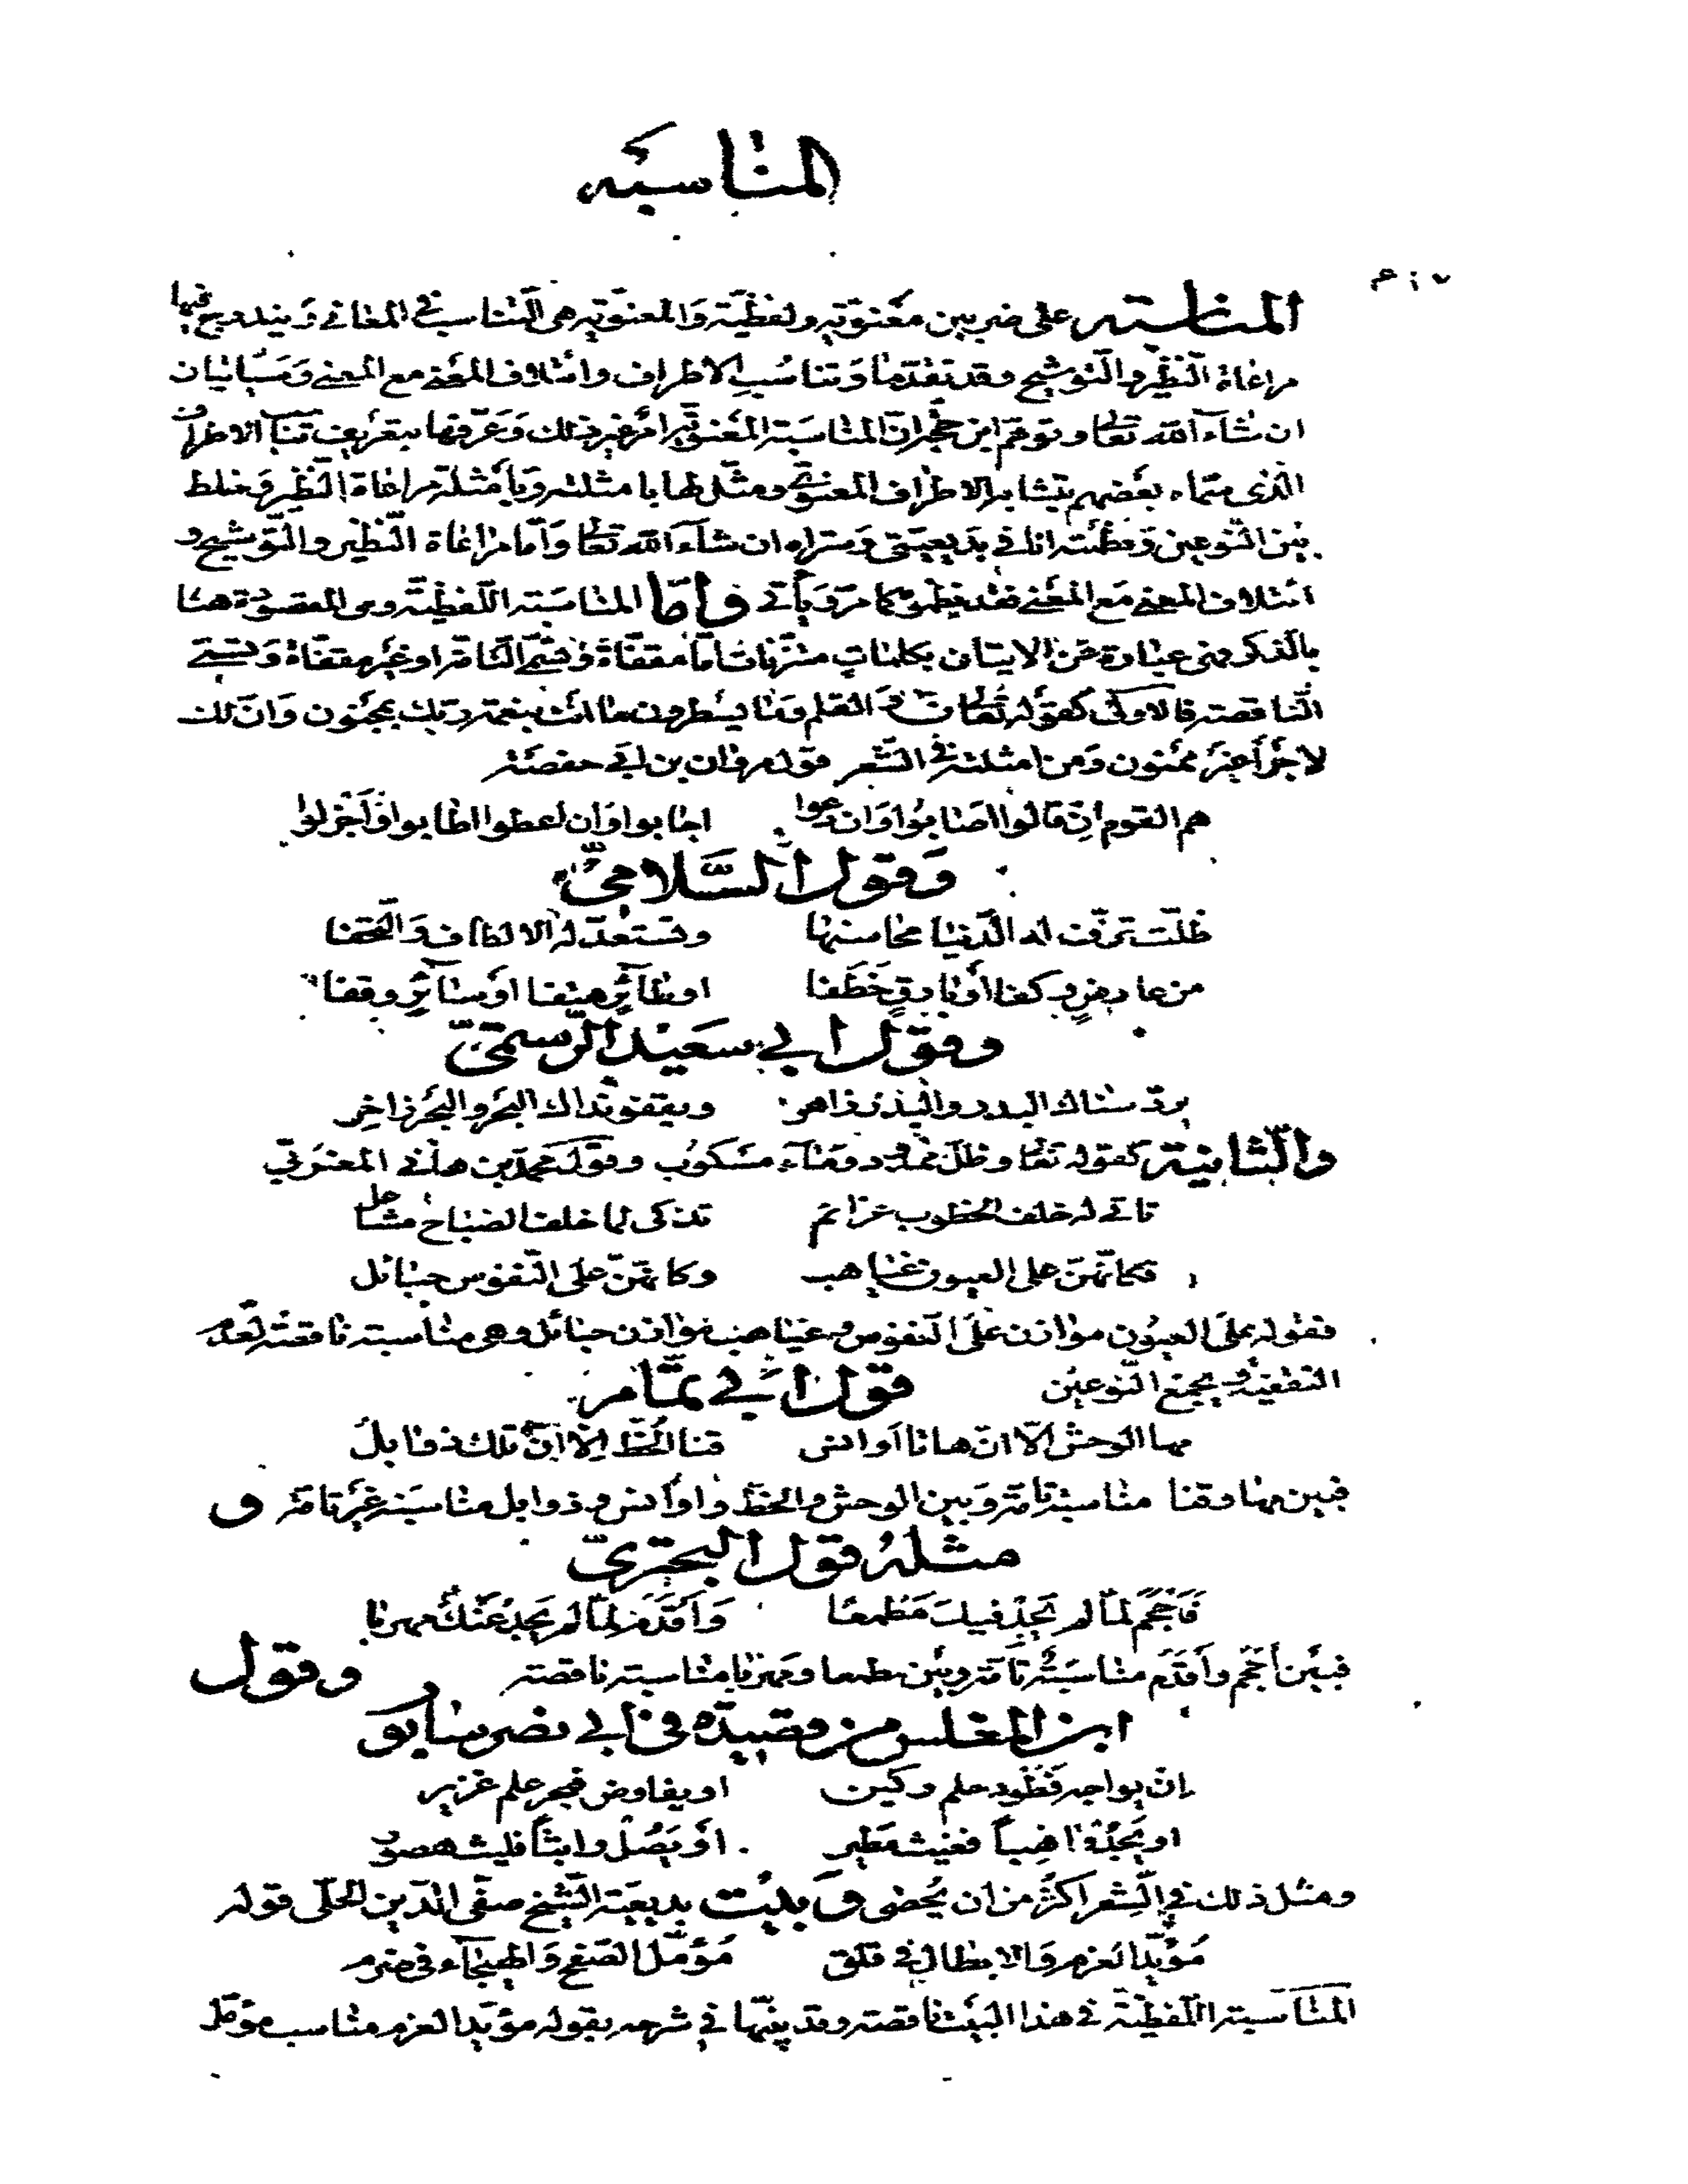 المناسبة
المناسبة على ضربين معنوية ولفظية والمعنوية هى التناسب فى المعانى ويندرج فيها
مراعاة النظير والتوشيح وقد تقدما وتناسب الاطراف وائتلاف المعنى مع المعنى وسيأتيان
ان شاء الله تعالى وتوهم ابن حجة ان المناسبة المعنوية امر غير ذلك وعرفها بتعريف تشابه الاطراف
الذى سماه بعضهم بتشابه الاطراف المعنوى ومثل لها بامثلته وبامثلة مراعاة النظير فخلط
بين النوعين ونظمته انا فى بديعيتى وستراه ان شاء الله تعالى واما مراعاة النظير والتوشيح و
ائتلاف المعنى مع المعنى فقد نظموه كما مر ويأتى واما المناسبة اللفظية وهى المقصودة هنا
بالذكر فهى عبارة عن الايتان بكلمات متزنات اما مقفاة وتسمى التامة او غير مقفاة وتسمى
الناقصة فالاولى كقوله تعالى ن والقلم وما يسطرون ما انت بنعمة ربك بمجنون وان لك
لاجرا غير ممنون ومن امثلته فى الشعر قول مروان بن ابى حفصة
هم القوم ان قالوا اصابوا وان دعوا اجابوا وان اعطوا اطابوا واجزلوا
وقول السلامى
ظلت تزف له الدنيا محاسنها وتستعد له الالطاف والتحفا
من عارض وكفا او بارق خطفا او طائر هتفا او سائر وقفا
وقول ابى سعيد الرستمى
يرد سناك البدر والبدر زاهر ويقفو نداك البحر والبحر زاخر
والثانية كقوله تعالى وظل ممدود وماء مسكوب وقول محمد بن هانى المغربى
تأتى له خلف الخطوب عزائم تذكى لها خلف الصباح مشاعل
فكانهن على العيون غياهب وكانهن على النفوس حبائل
فقوله على العيون موازن على النفوس وغياهب موازن حبائل وهى مناسبة ناقصة لعدم
التقفية ويجمع النوعين قول ابى تمام
مها الوحش الا ان هاتا اوانس قنا الخط الا ان تلك ذوابل
فبين مها وقنا مناسبة تامة وبين الوحش والخط واوانس وذوابل مناسبة غير تامة و
مثله قول البحترى
فاحجم لما لم يجد فيك مطمعا واقدم لما لم يجد عنك مهربا
فبين احجم واقدم مناسبة تامة وبين مطمعا ومهربا مناسبة ناقصة وقول
ابن المغلس من قصيدة فى ابى نصر سابور
ان يواجه فطود حلم ركين او يفاوض فبحر علم غزير
او يجد واهبا فغيث مطير او يصل واثبا فليث هصور
ومثل ذلك فى الشعر اكثر من ان يحصى وبيت بديعية الشيخ صفى الدين الحلى قوله
مؤيد العزم والابطال فى قلق مؤمل الصفح والهيجاء فى ضرم
المناسبة اللفظية فى هذا البيت ناقصة وقد بينها فى شرحه بقوله مؤيد العزم مناسب مؤمل